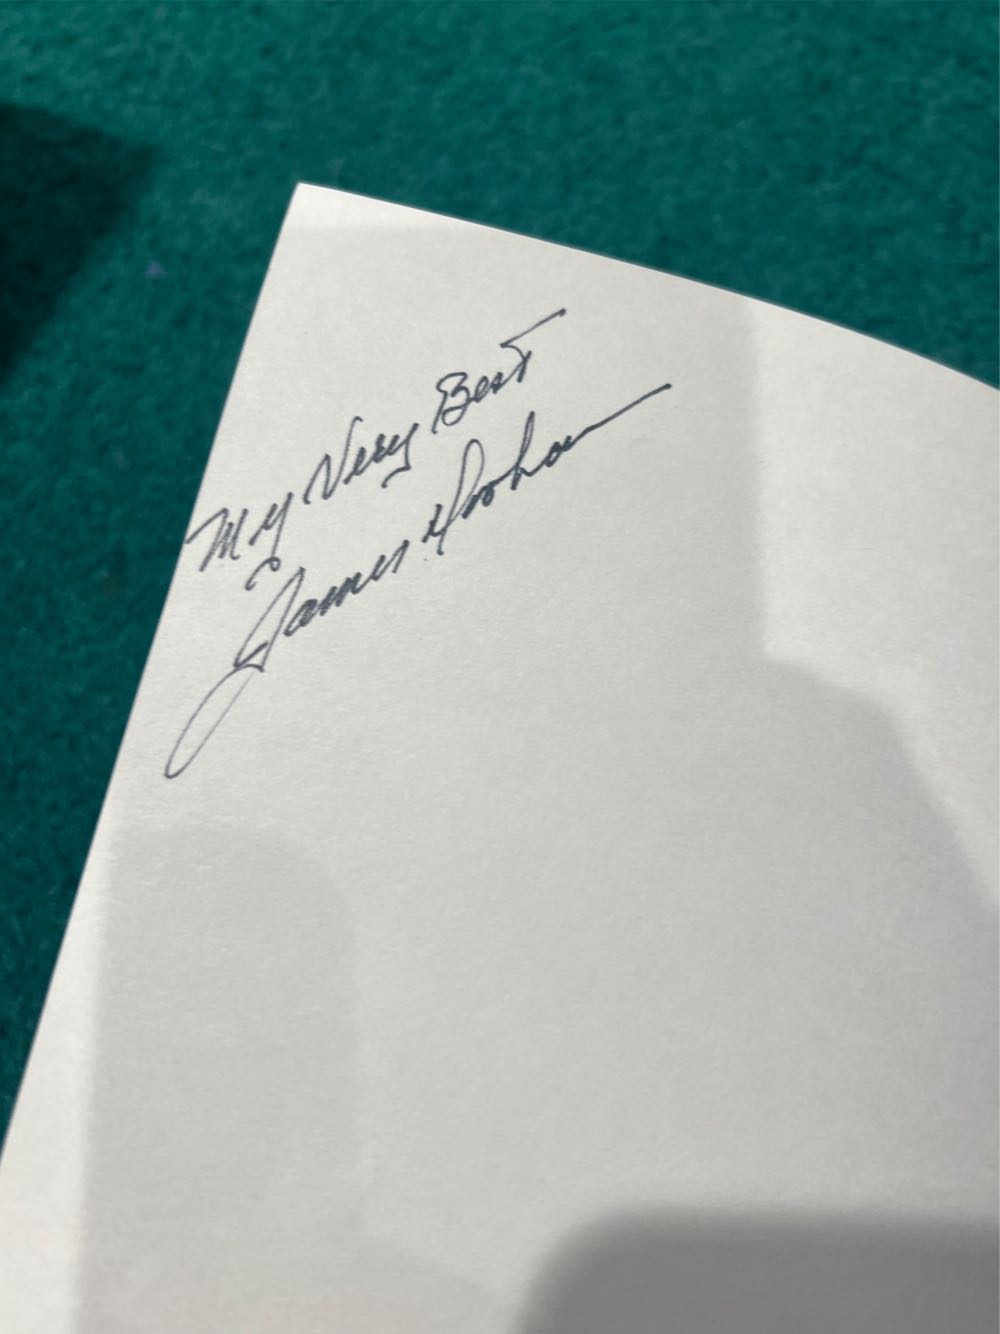 My Very Best
James Doohan